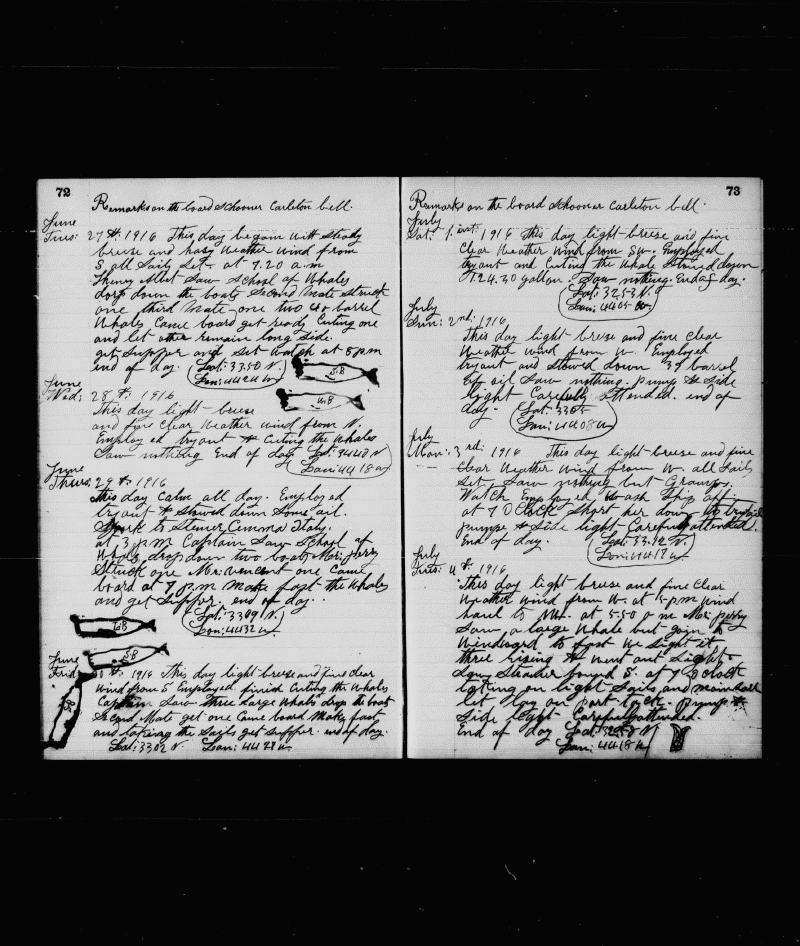 72
Remarks on the board Schooner Carleton bell.
June
Tues: 27th. 1916 This day began with steady
breese and hasy Weather wind from
S all Sails Set. at 7.20 a.m
Henry Must Saw School of Whales
dorp down the boats Second Mate Struck
one third Mate one two 40 barrel
Whales Came board get ready Cuting one
and let other remain long Side.
get Supper and Set Watch at 8 pm
end of day. Lat: 33.50 N.
Lon: 44 24 W
S.B
4.B
June
Wed: 28th. 1916
This day light breese
and fine Clear Weather wind from N.
Employed tryant & Cuting the Whales
Saw nothing End of day Lat: 3448 N
Lon: 44 18 W
June
Thurs: 29th. 1916
this day Calm all day. Employed
tryant & Stowed down Some oil.
Spork to Steiner Cemma Italy.
at 3 p.m Captain Saw School of
Whals drop down two boats Mr: perry
Struck one Mr: Vincent one Came
board at 7 p.m Make fast the Whales
and get Supper. end of day.
Lat: 3309 N.
Lon: 4432 W.
S.B
June
Frid: 30th. 1916 This day light breese and fine clear
Wind from S Employed finid Cuting the Whales
Captain Saw three Large Whals drop the boat
Second Mate get one Came board Makes fast
and taking the Sails get Supper. end of day.
Lat: 3302 N. Lon: 44 28 W
73
Remarks on the board Schooner Carleton bell.
July
Sat: 1. 1916 This day light breese and fine
Clear Weather Wind from SW. Employed
tryant and Cuting the Whale Stowed down
1.24.30 gallon. Saw nothing. End of day.
Lat: 32.53 N.
Lon: 4405 W.
July
Sun: 2nd. 1916
This day light breese and fine Clear
Weather wind from W. Employed
tryant and Stowed down 39 barrel
of oil Saw nothing. pump & Side
light Carefuly attended. end of
day. Lat: 3305
Lon: 4408 W
July
Mon: 3rd: 1916 This day light breese and fine
Clear Weather wind from W. all Sails
Set Saw nothing but
Watch Employed Wash Ship off.
at 7 O Clock Short her down
pumps & Side light Carefuly attended.
End of day. Lat: 33.12 N.
Lon: 4417 W
July
Tues: 4th. 1916
This day light breese and fine Clear
Weather wind from W. at 5 p.m Wind
haul to at 5.50 p.m Mr: perry
Saw, a large Whale but goin to
Windward to fast We Sight it
three rising & Went out Sight.
Saw Steamer bound S. at 7 O clock
taking on light Sails and mainsail
let lay on port tack. pump &
Side light Carefuly attended.
End of day Lat: N
Lon: 4418 W